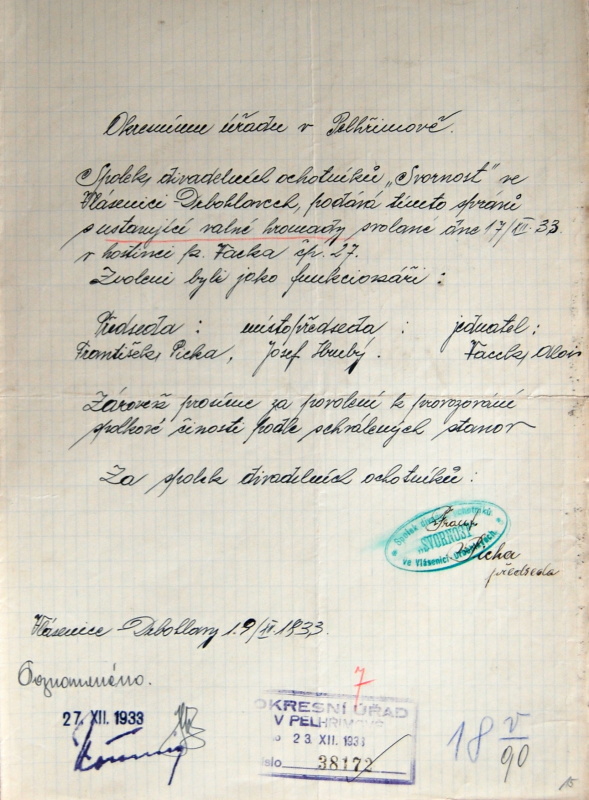 Okresnímu úřadu v Pelhřimově.
Spolek divadelních ochotníků „Svornost" ve
Vlásenici Drbohlavech, podává tímto zprávu
s ustavující valné hromady svolané dne 17/XII. 33.
v hostinci p. Vacka čp. 27.
Zvoleni byli jako funkcionáři :
Předseda : místopředseda : jednatel :
František Picha, Josef Hrubý. Vacek Alois
Zároveň prosíme za povolení k provozování
spolkové činosti podle schválených stanov
Za spolek divadelních ochotníků :
Frant.
Spolek ochotníků
„SVORNOST"
ve Vlásenici-Drbohlavech.
Picha
předseda
Vlásenice - Drbohlavy 19/XII. 1933.
Oznameného.
27. XII. 1933
7
OKRESNÍ ÚŘAD
V PELHŘIMOVĚ
23. XII. 1933
číslo 38172
18 V/90
15